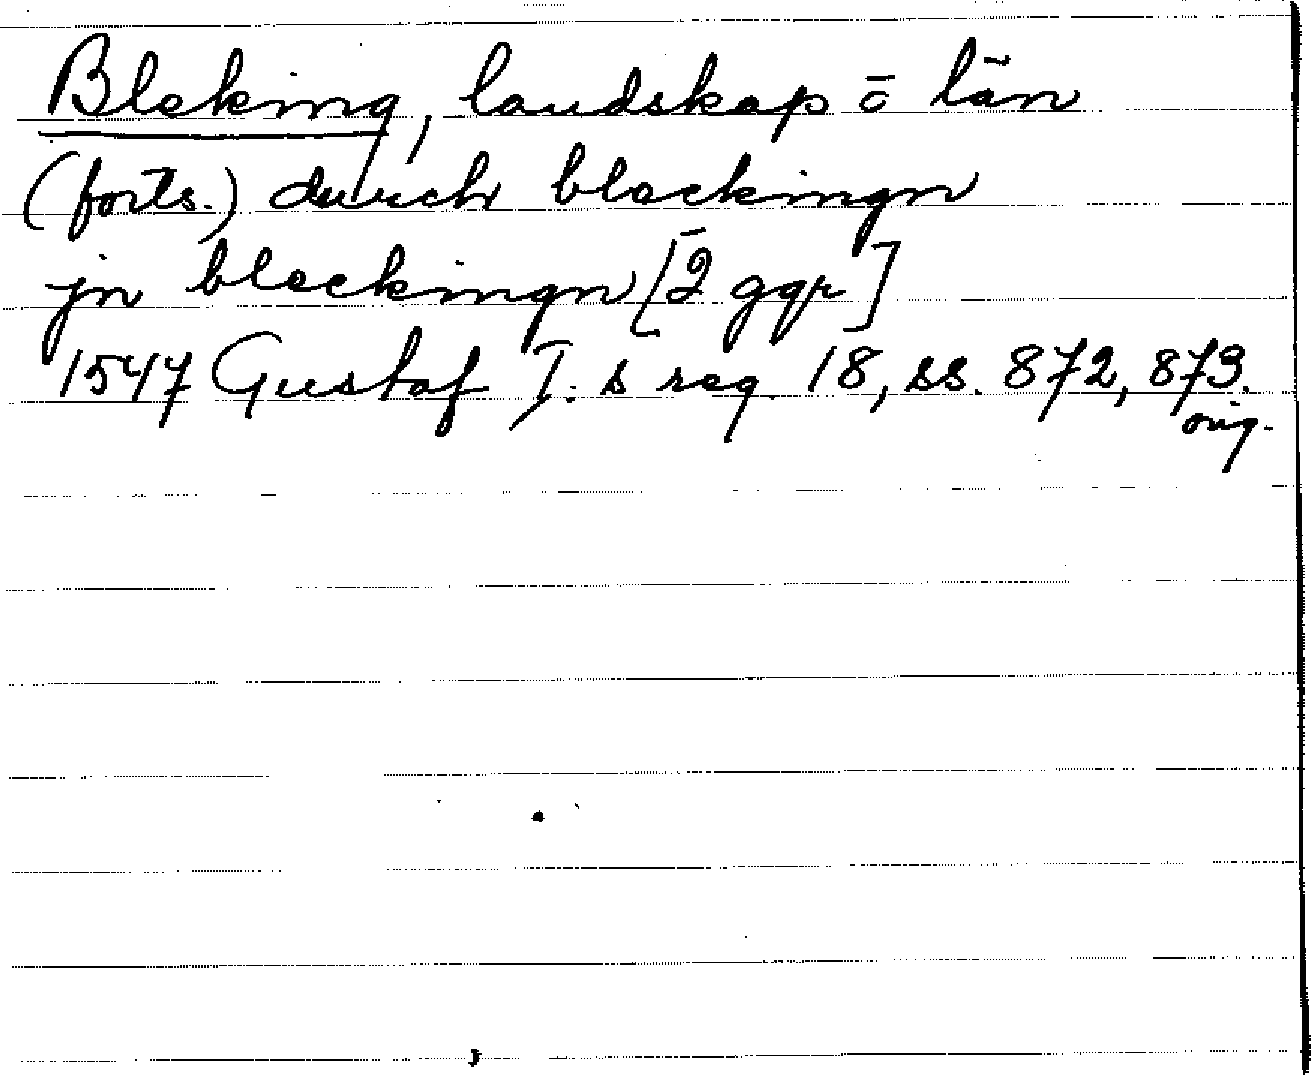 Bleking, landskap o̅ län
(forts.) durch bleckingn
jn bleckingn [2̅ ggr]
1547 Gustaf I:s reg. 18, ss. 872, 873.
orig.